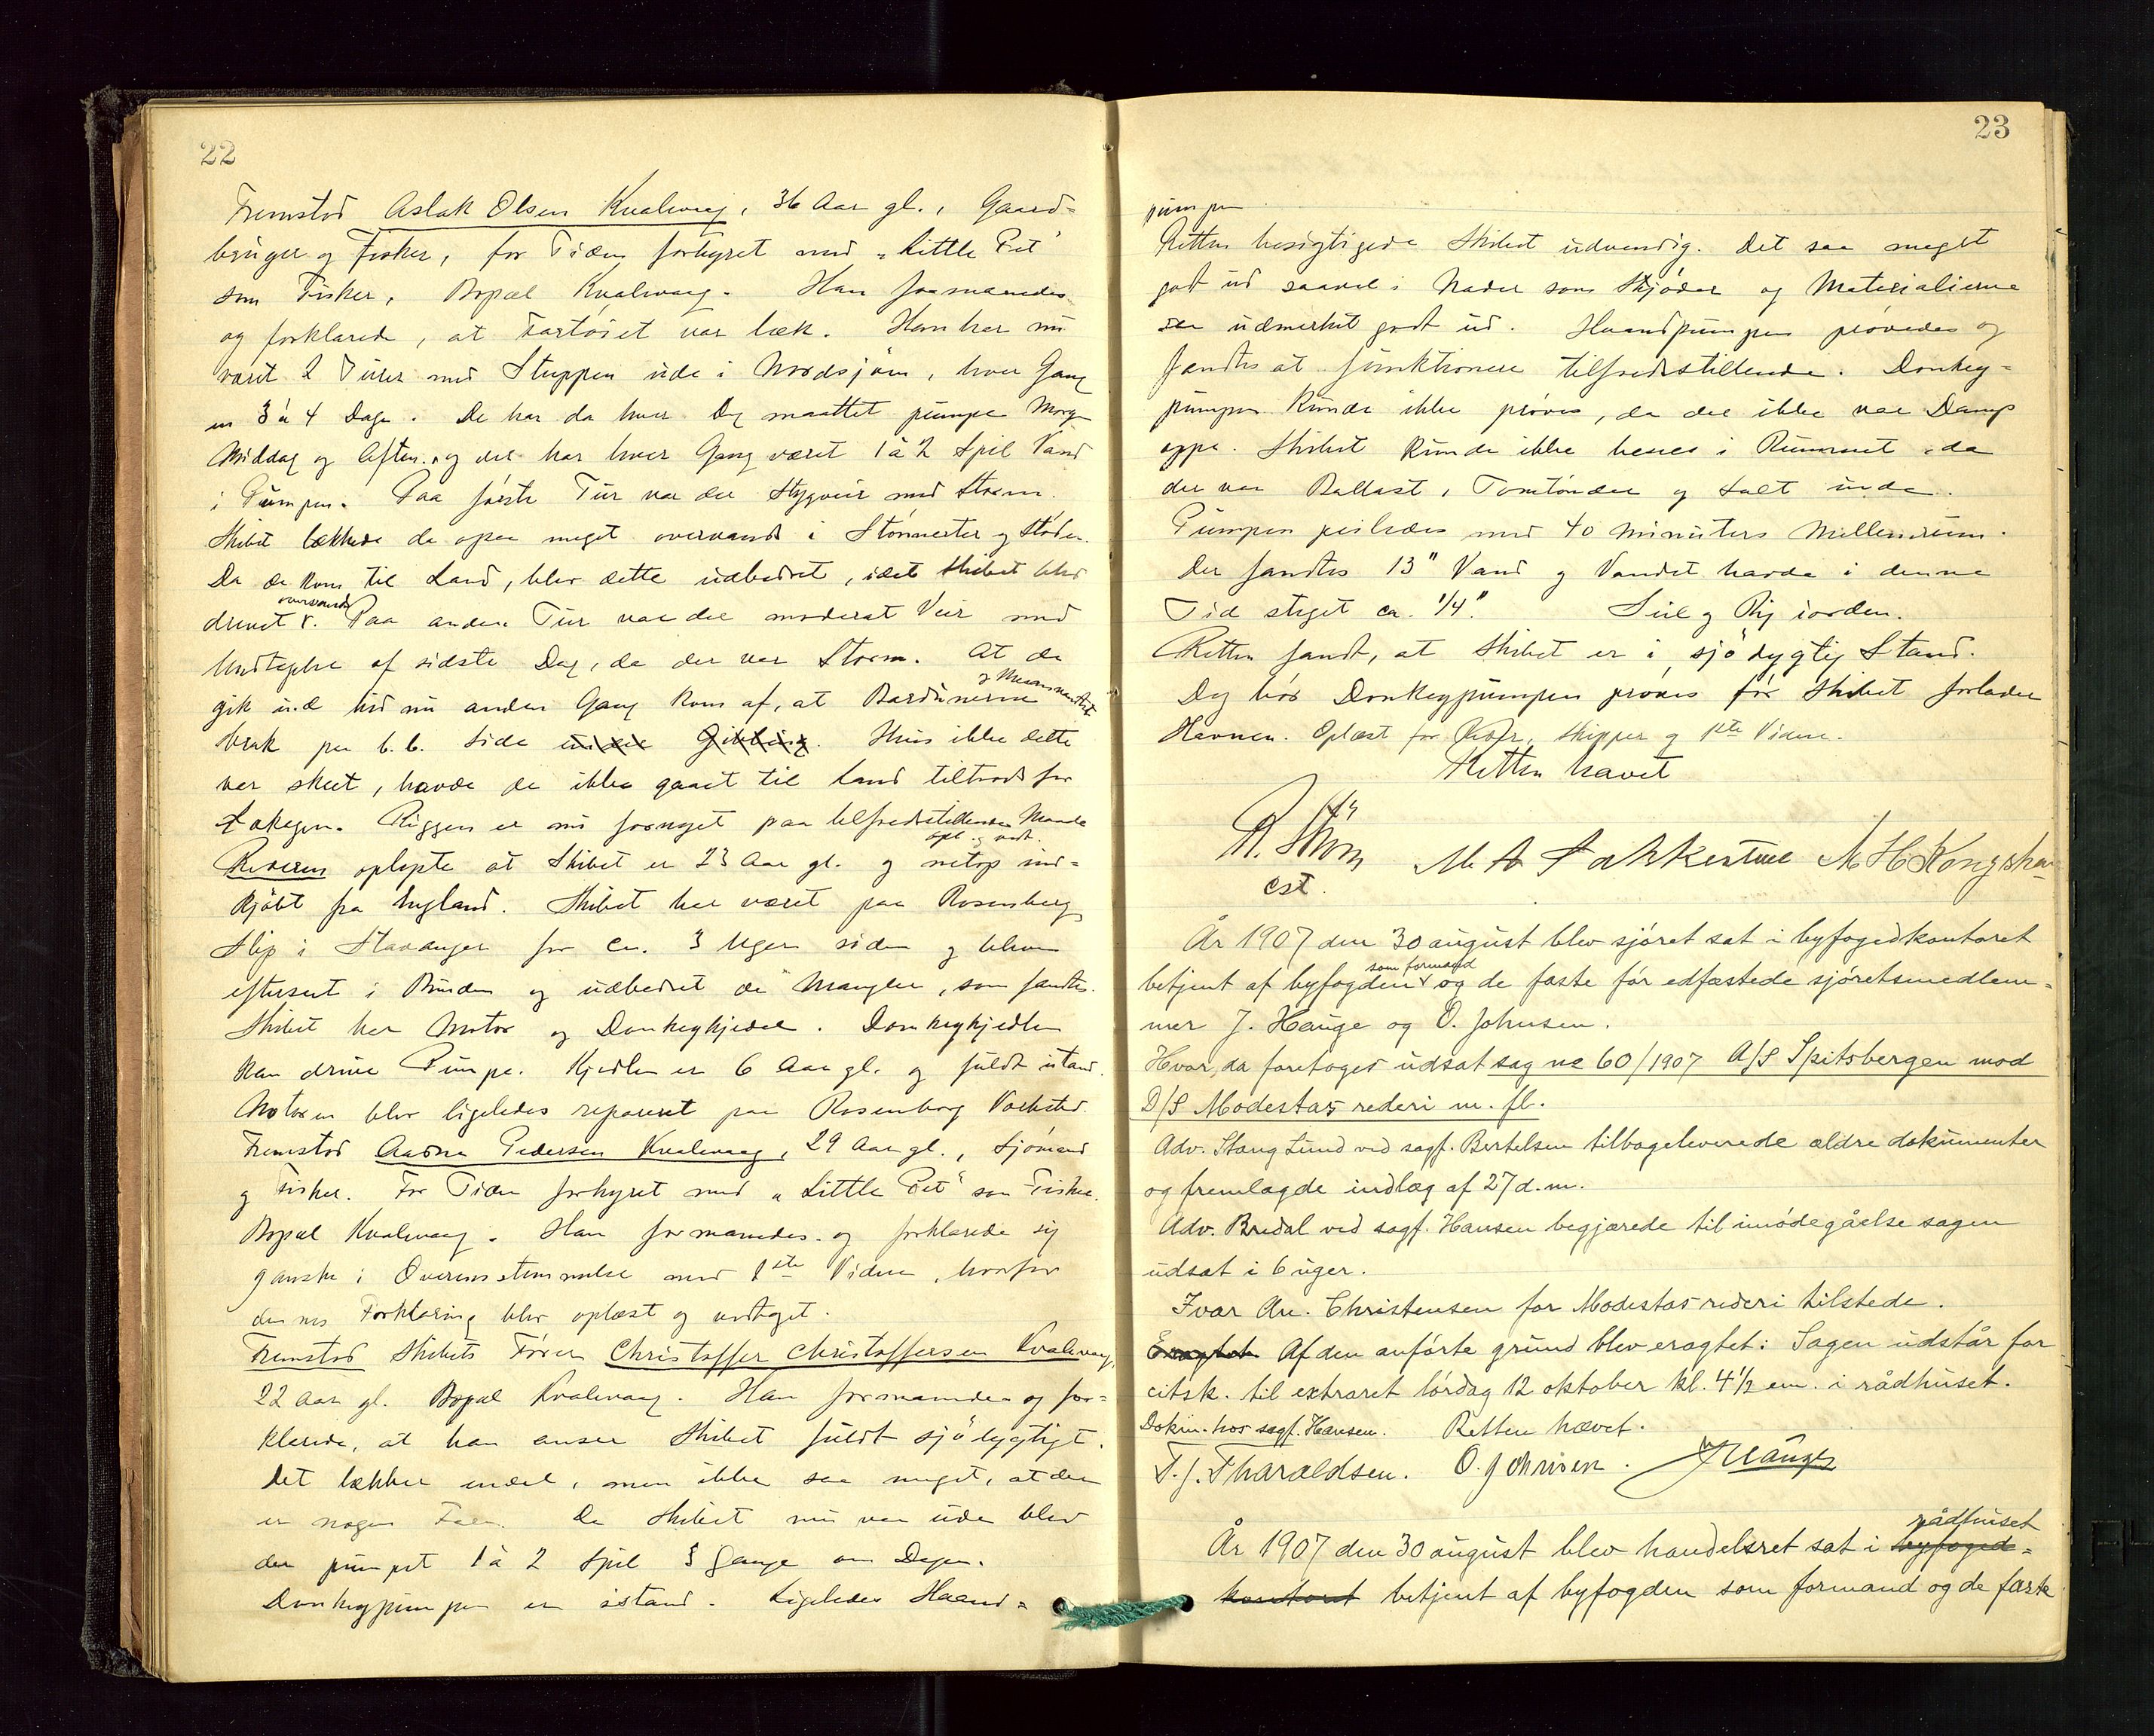 22
Fremstod Aslak Olsen Kvalevaag, 36 Aar gl., Gaard-
bruger og Fisker, for Tiden forhyret med „Little Pet"
som Fisker, Bopæl Kvalevaag. Han formanedes
og forklarede, at Fartøiet var læk. Han har nu
været 2 Turer med Skuppen ude i Nordsjøen, hver Gang
en 3 à 4 Dage. De har da hver Dag maattet pumpe Morgen
Middag og Aften, og det har hver Gang været 1 à 2 Spil Vand
i Pumpen. Paa første Tur var der Stygveir med Storm.
Skibet lækkede da ogsaa meget overvands i Stønnerter og Støder.
Da de kom til Land, blev dette udbedret, idet Skibet blev
drevet overvands. Paa anden Tur var det moderat Veir med
Undtagelse af sidste Dag, da der var Storm. At de
gik ind hid nu anden Gang kom af, at Bardunerne
brak paa b.b. Side under Gibbing. Hvis ikke dette
var skeet, havde de ikke gaaet til Land tiltrods for
Lækagen. Riggen er nu fornyet paa tilfredsstillende Maade
opl. og vedt.
Rederen oplyste at Skibet er 23 Aar gl. og netop ind-
kjøbt fra England. Skibet har været paa Rosenberg
Slip i Stavanger for ca. 3 Uger siden og blev
efterseet i Bunden og udbedret de Mangler, som fandtes.
Skibet har Motor og Donkeykjedel. Donkeykjedlen
kan drive Pumpe. Kjedlen er 6 Aar gl. og fuldt istand.
Motoren blev ligeledes repareret paa Rosenberg Værksted.
Fremstod Aadne Pedersen Kvalevaag, 29 Aar gl., Sjømand
og Fisker. For Tiden forhyret med „Little Pet" som Fisker.
Bopæl Kvalevaag. Han formanedes og forklarede sig
ganske i Overensstemmelse med 1ste Vidne, hvorfor
dennes Forklaring blev oplæst og vedtaget.
Fremstod Skibets Fører Christoffer Christoffersen Kvalevaag,
22 Aar gl. Bopæl Kvalevaag. Han formanedes og for-
klarede, at han anser Skibet fuldt sjødygtigt.
Det lækker endel, men ikke saa meget, at der
er nogen Fare. Da Skibet nu var ude blev
der pumpet 1 à 2 Spil 3 Gange om Dagen.
Donkeypumpen er istand. Ligeledes Haand-
23
pumpen
Retten besigtigede Skibet udvendig. Det saa meget
godt ud saavel i Nader som Skjøder og Materialierne
saa udmerket godt ud. Haandpumpen prøvedes og
fandtes at funktionere tilfredsstillende. Donkey-
pumpen kunde ikke prøves, da der ikke var Damp
oppe. Skibet kunde ikke besees i Rummet, da
der var Ballast, Tomtønder og Salt inde.
Pumpen peiledes med 40 Minuters Mellemrum.
Der fandtes 13" Vand og Vandet havde i denne
Tid steget ca. 1/4". Seil og Rig iorden.
Retten fandt, at Skibet er i sjødygtig Stand.
Dog bør Donkeypumpen prøves før Skibet forlader
Havnen. Oplæst for Skipper og 1ste Vidne.
Retten hævet
R. Strøm
cst.
År 1907 den 30 august blev sjøret sat i byfogedkontoret
betjent af byfogden som formand og de faste før edfæstede sjøretsmedlem-
mer J. Hauge og O. Johnsen.
Hvor da foretoges udsat sag no 60/1907 A/S Spitsbergen mod
D/S Modestas rederi m. fl.
Adv. Stang Lund ved sagf. Bertelsen tilbageleverede ældre dokumenter
og fremlagde indlæg af 27 d.m.
Adv. Bredal ved sagf. Hansen begjærede til imødegåelse sagen
udsat i 6 uger.
Ivar An. Christensen for Modestas rederi tilstede.
Eragtet Af den anførte grund blev eragtet: Sagen udstår for
citsk. til extraret lørdag 12 oktober kl. 4 1/2 em. i rådhuset.
Dokum. hos sagf. Hansen. Retten hævet.
T. J. Tharaldsen. O. Johnsen. J Hauge
År 1907 den 30 august blev handelsret sat i byfoged- rådhuset
kontoret betjent af byfogden som formand og de faste